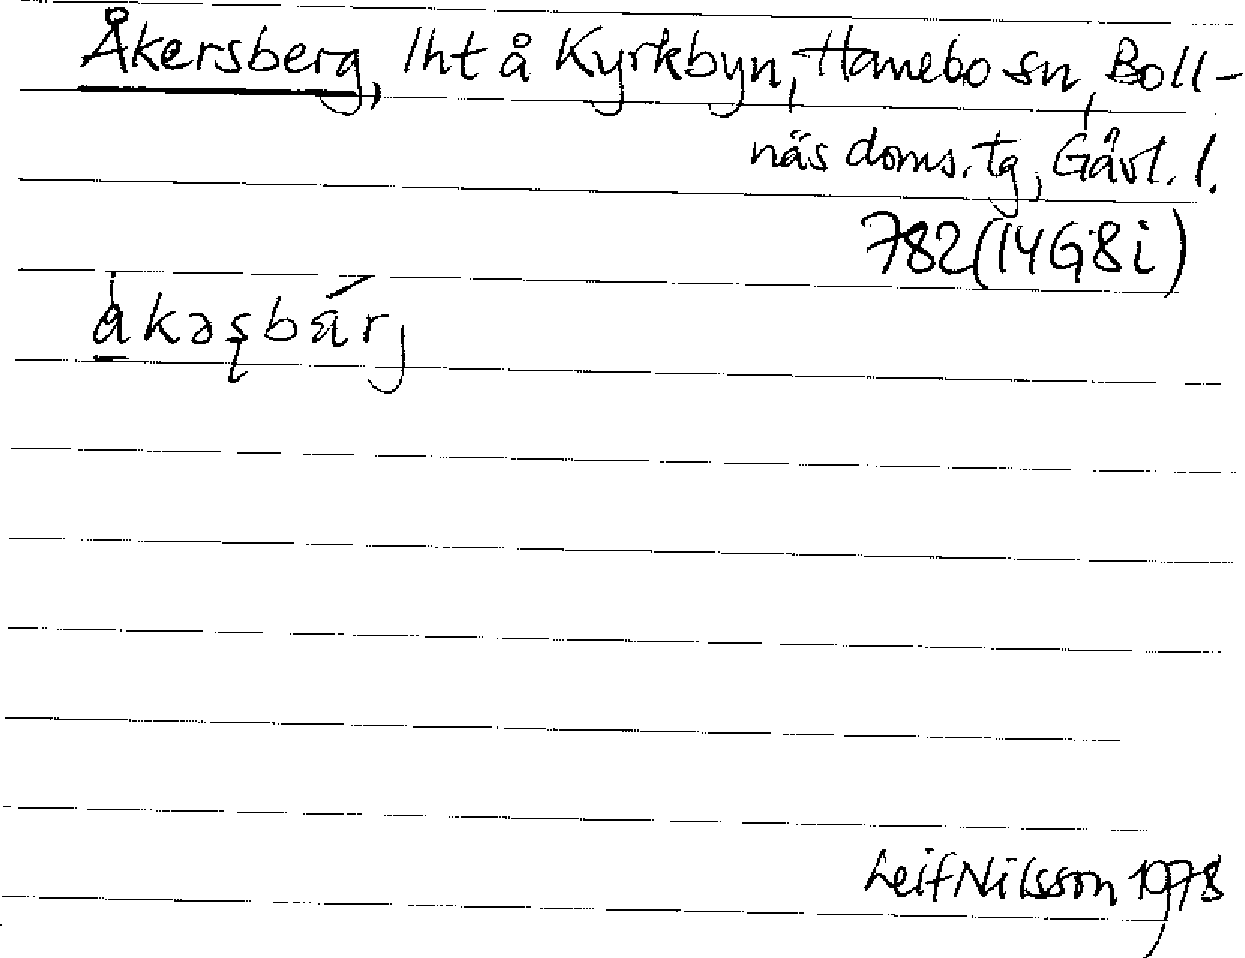 Åkersberg, lht å Kyrkbyn, Hanebo sn, Boll-
näs doms. tg, Gävl. l.
782 (14G8i)
Leif Nilsson 1978